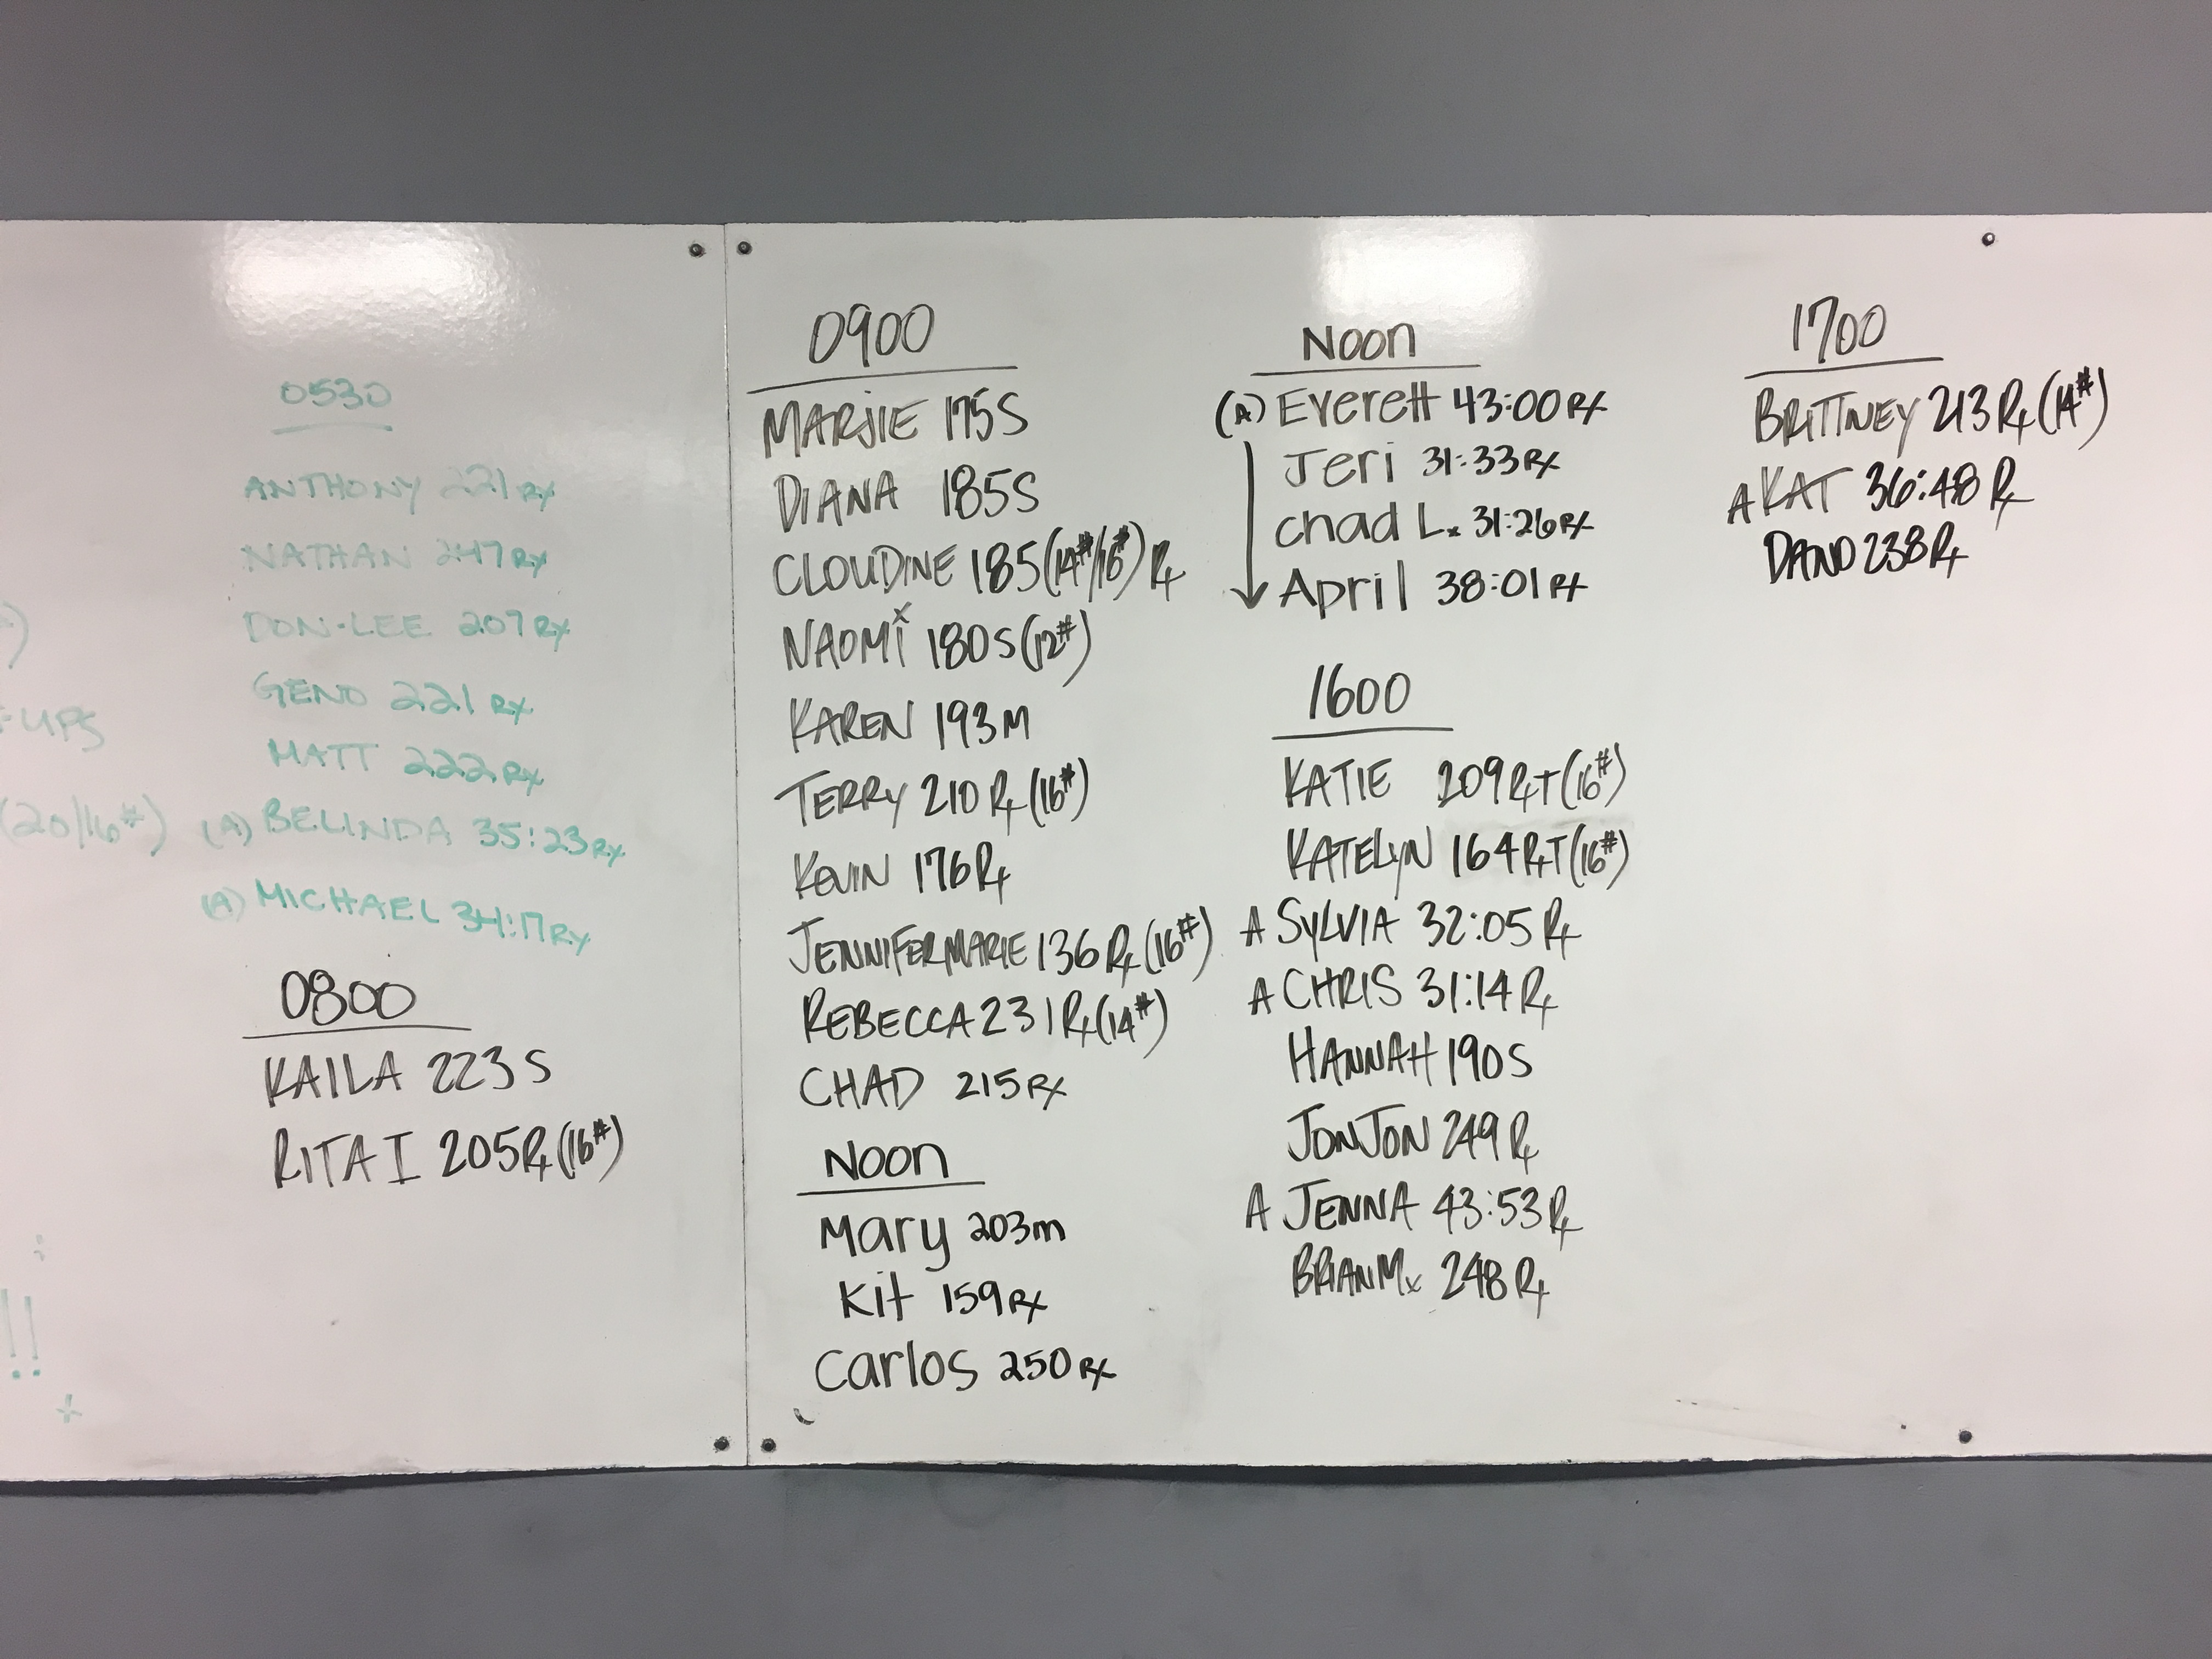 0530
ANTHONY 221 Rx
NATHAN 247 Rx
DON-LEE 207 Rx
GENO 221 Rx
MATT 222 Rx
(A) BELINDA 35:23 Rx
(A) MICHAEL 34:17 Rx
-UPS
(20/16#)
!!
0800
KAILA 223 S
RITA I 205 Rx (16#)
0900
MARJIE 175 S
DIANA 185 S
CLOUDINE 185 (14#/16#) Rx
NAOMI 180 S (12#)
KAREN 193 M
TERRY 210 Rx (16#)
KEVIN 176 Rx
JENNIFERMARIE 136 Rx (16#)
REBECCA 231 Rx (14#)
CHAD 215 Rx
Noon
Mary 203m
Kit 159 Rx
Carlos 250 Rx
Noon
(A) Everett 43:00 Rx
Jeri 31:33 Rx
Chad L. 31:26 Rx
April 38:01 Rx
1600
KATIE 209 RxT (16#)
KATELYN 164 RxT (16#)
A SYLVIA 32:05 Rx
A CHRIS 31:14 Rx
HANNAH 190 S
JONJON 249 Rx
A JENNA 43:53 Rx
BRIAN M. 248 Rx
1700
BRITTNEY 213 Rx (14#)
A KAT 36:48 Rx
DANO 238 Rx